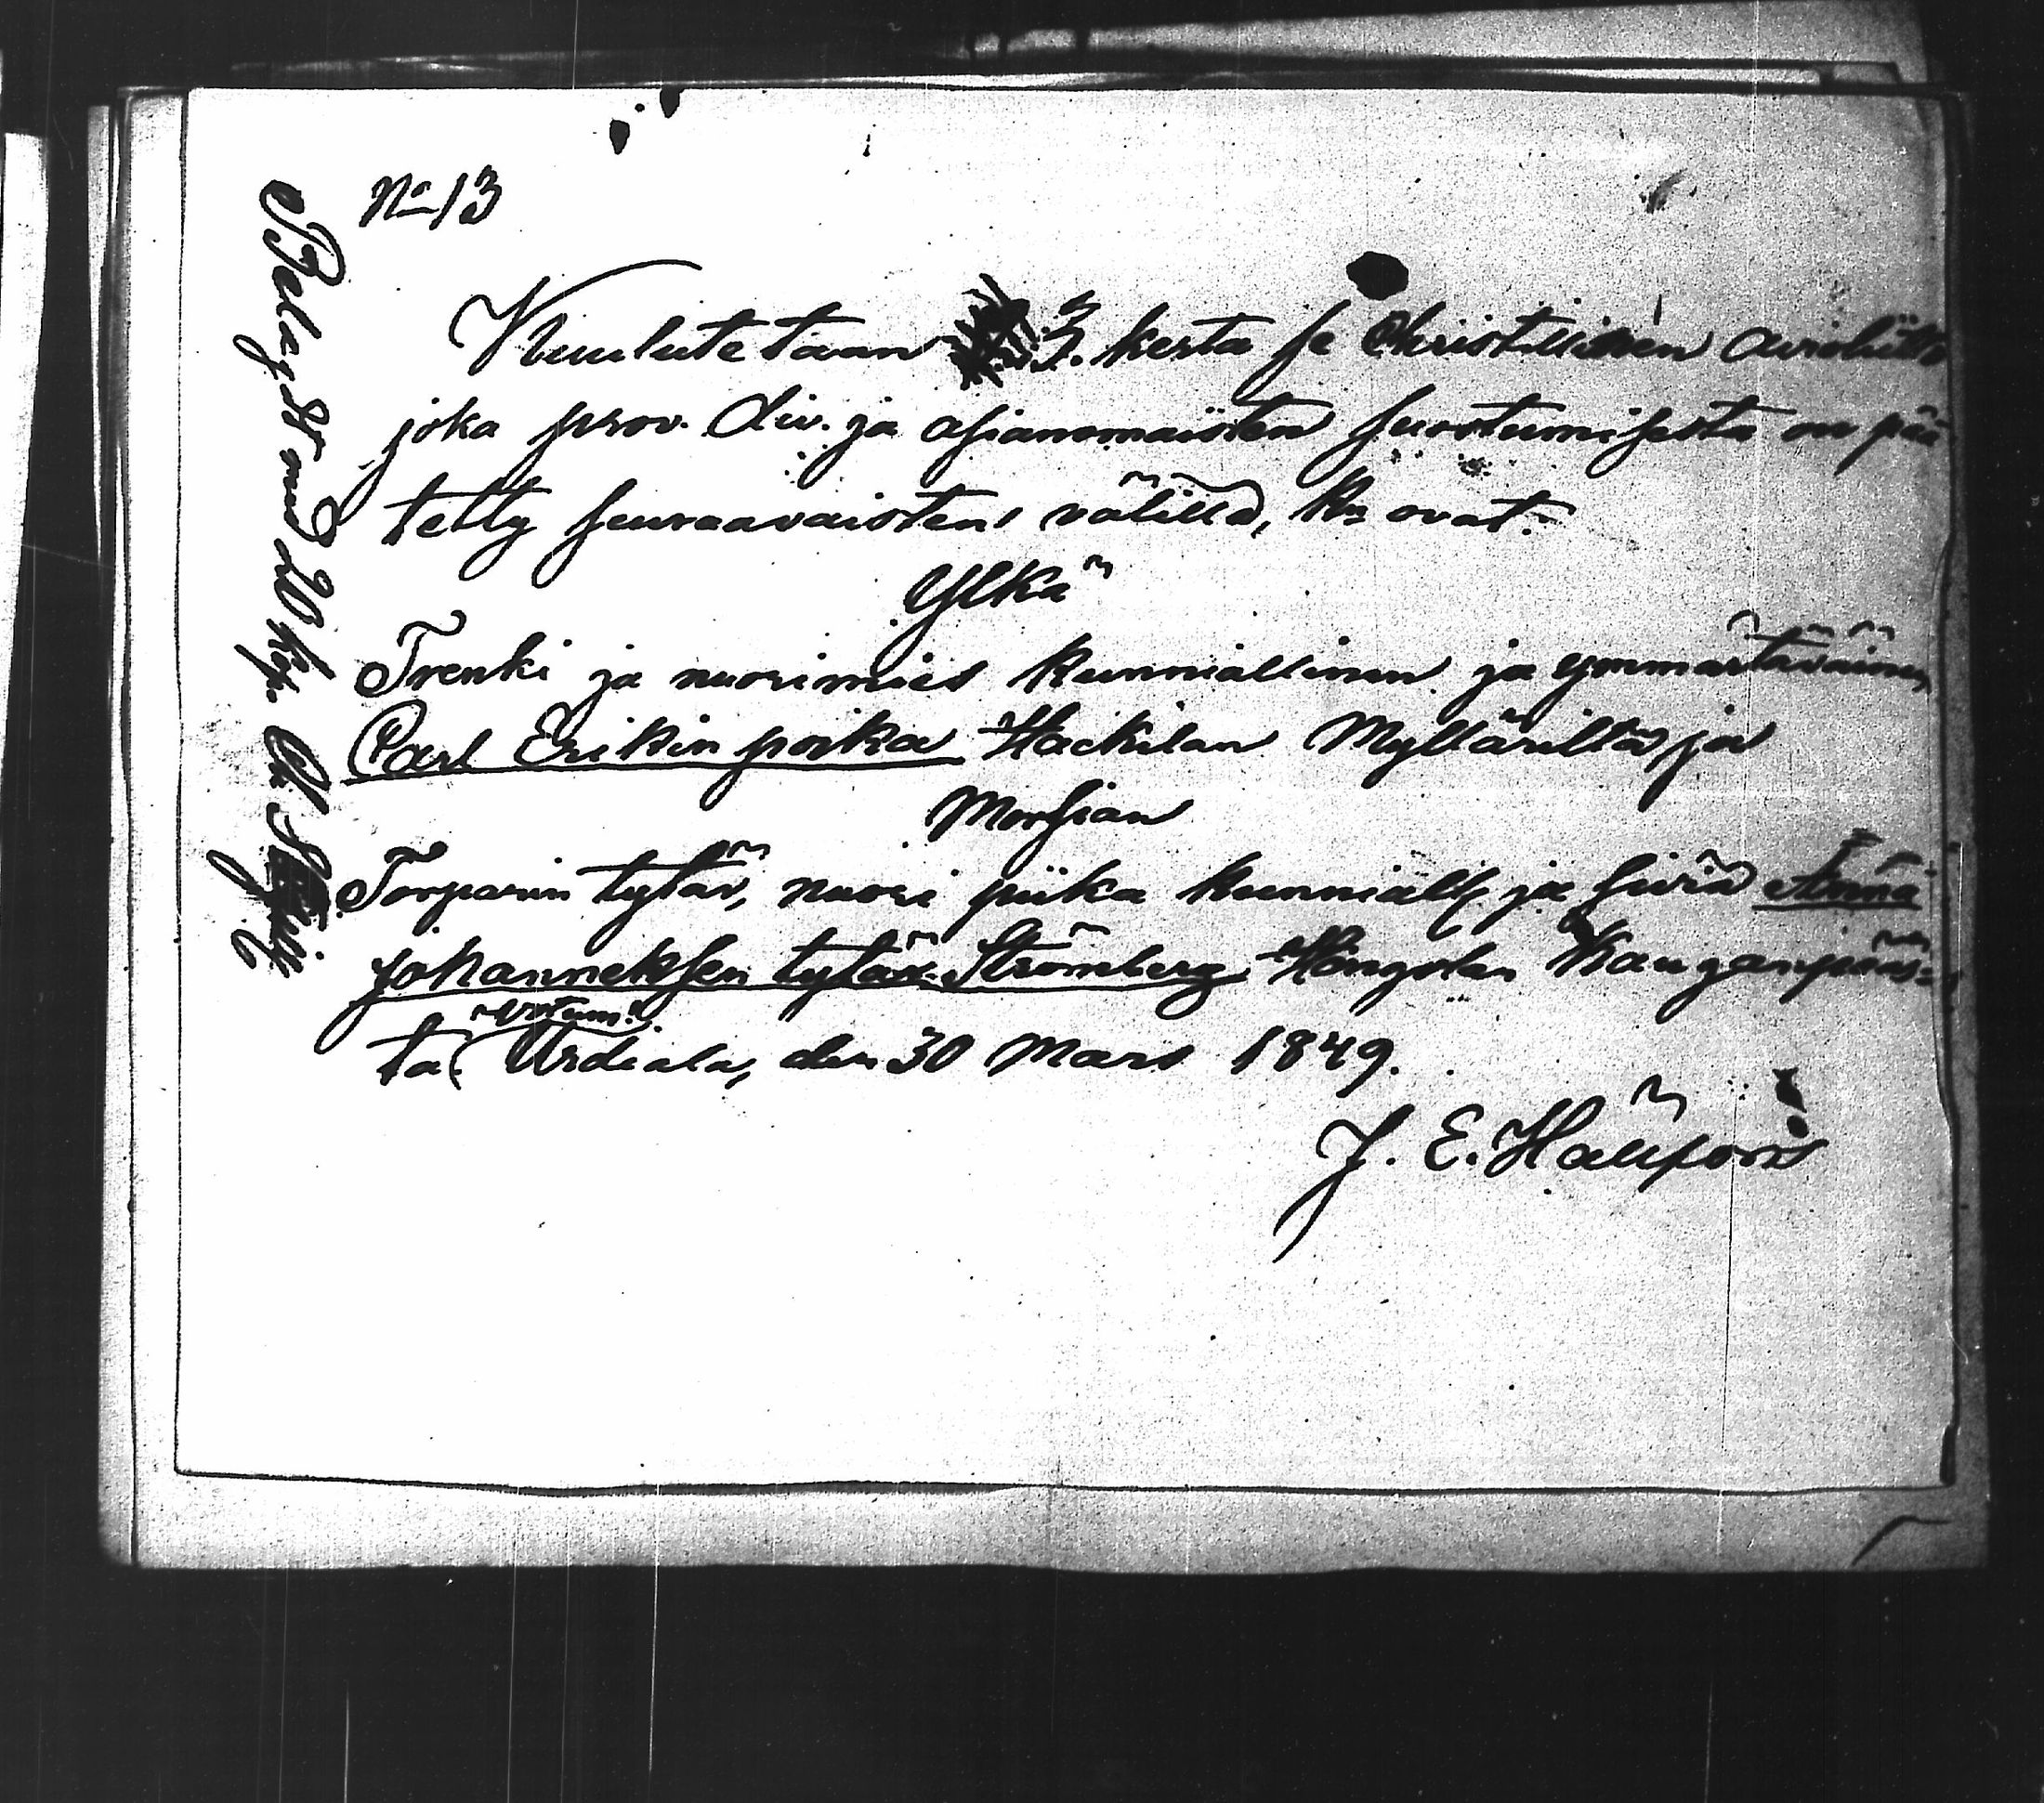 No 13
Kuulutetaan 3. kerta se Christillinen aviolitto
joka prov. div. ja asianmaisten suostumisesta on pää
tetty seuraavaisten välillä, kn ovat.
Ylkä
Trenki ja nuorimies kunniallinen ja ymmärtäväinen
Carl Erikin poika Hackilan Mylläriltä ja
Morsian
Torparin tytär, nuori piika kunniall. ja siviä Anna
Johanneksen tytär Strömberg Hongolan Kauganpääs-
ta (votum.
Urdiala, den 30 Mars 1849.
J. E. Hällfors
Belagdt med 20 kop. Ch. Sigill